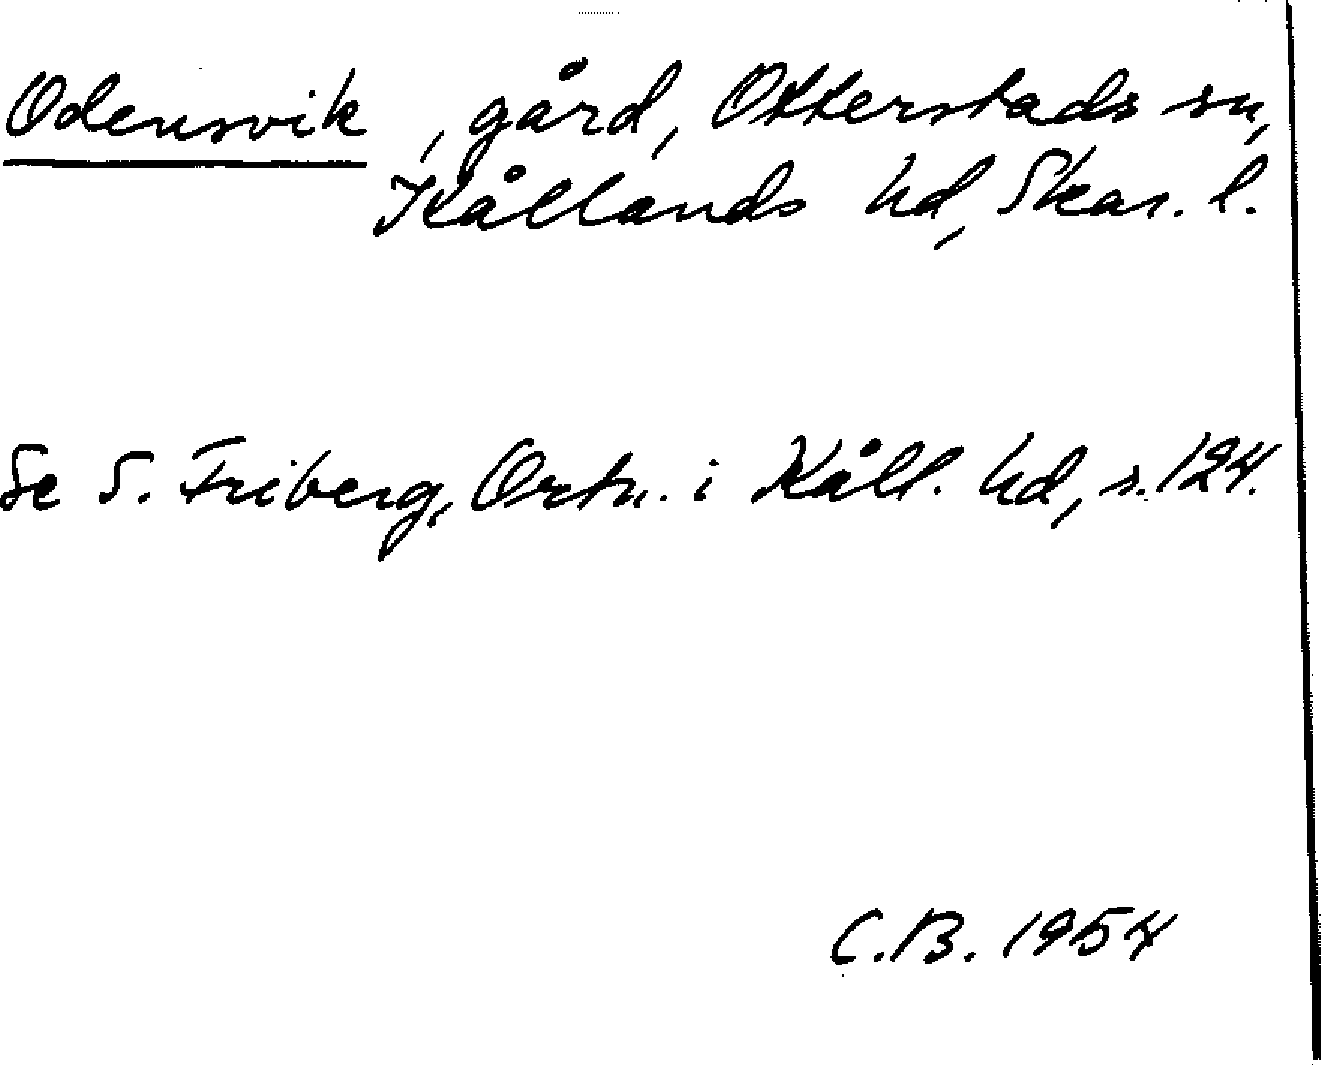 Odensvik, gård, Otterstads sn,
Kållands hd, Skar. l.
Se S. Friberg, Ortn. i Kåll. hd, s. 124.
C.B. 1954